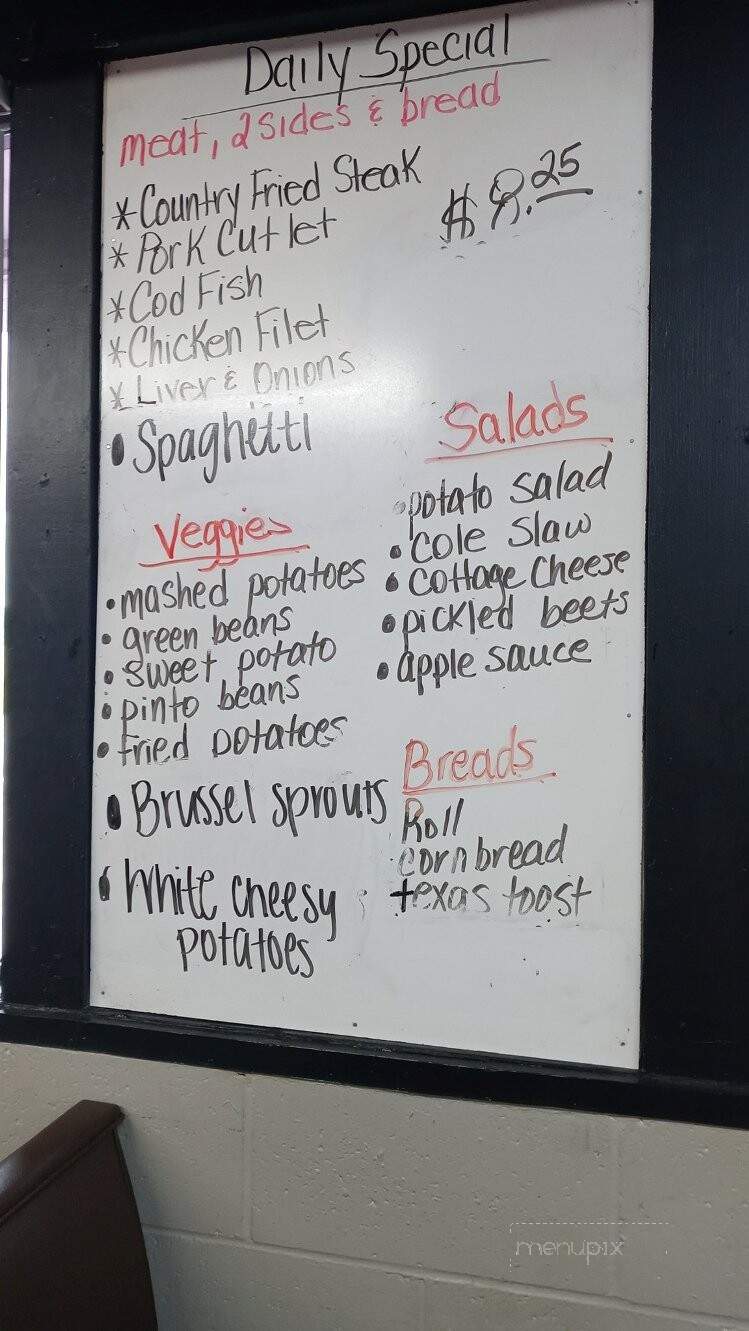 Daily Special
meat, 2 sides & bread
* Country Fried Steak
$ 8.25
* Pork Cutlet
* Cod Fish
* Chicken Filet
* Liver & Onions
• Spaghetti
Veggies
• mashed potatoes
• green beans
• sweet potato
• pinto beans
• fried potatoes
• Brussel sprouts
• White cheesy
potatoes
Salads
• potato salad
• cole slaw
• cottage cheese
• pickled beets
• apple sauce
Breads
Roll
corn bread
texas toost
menupix